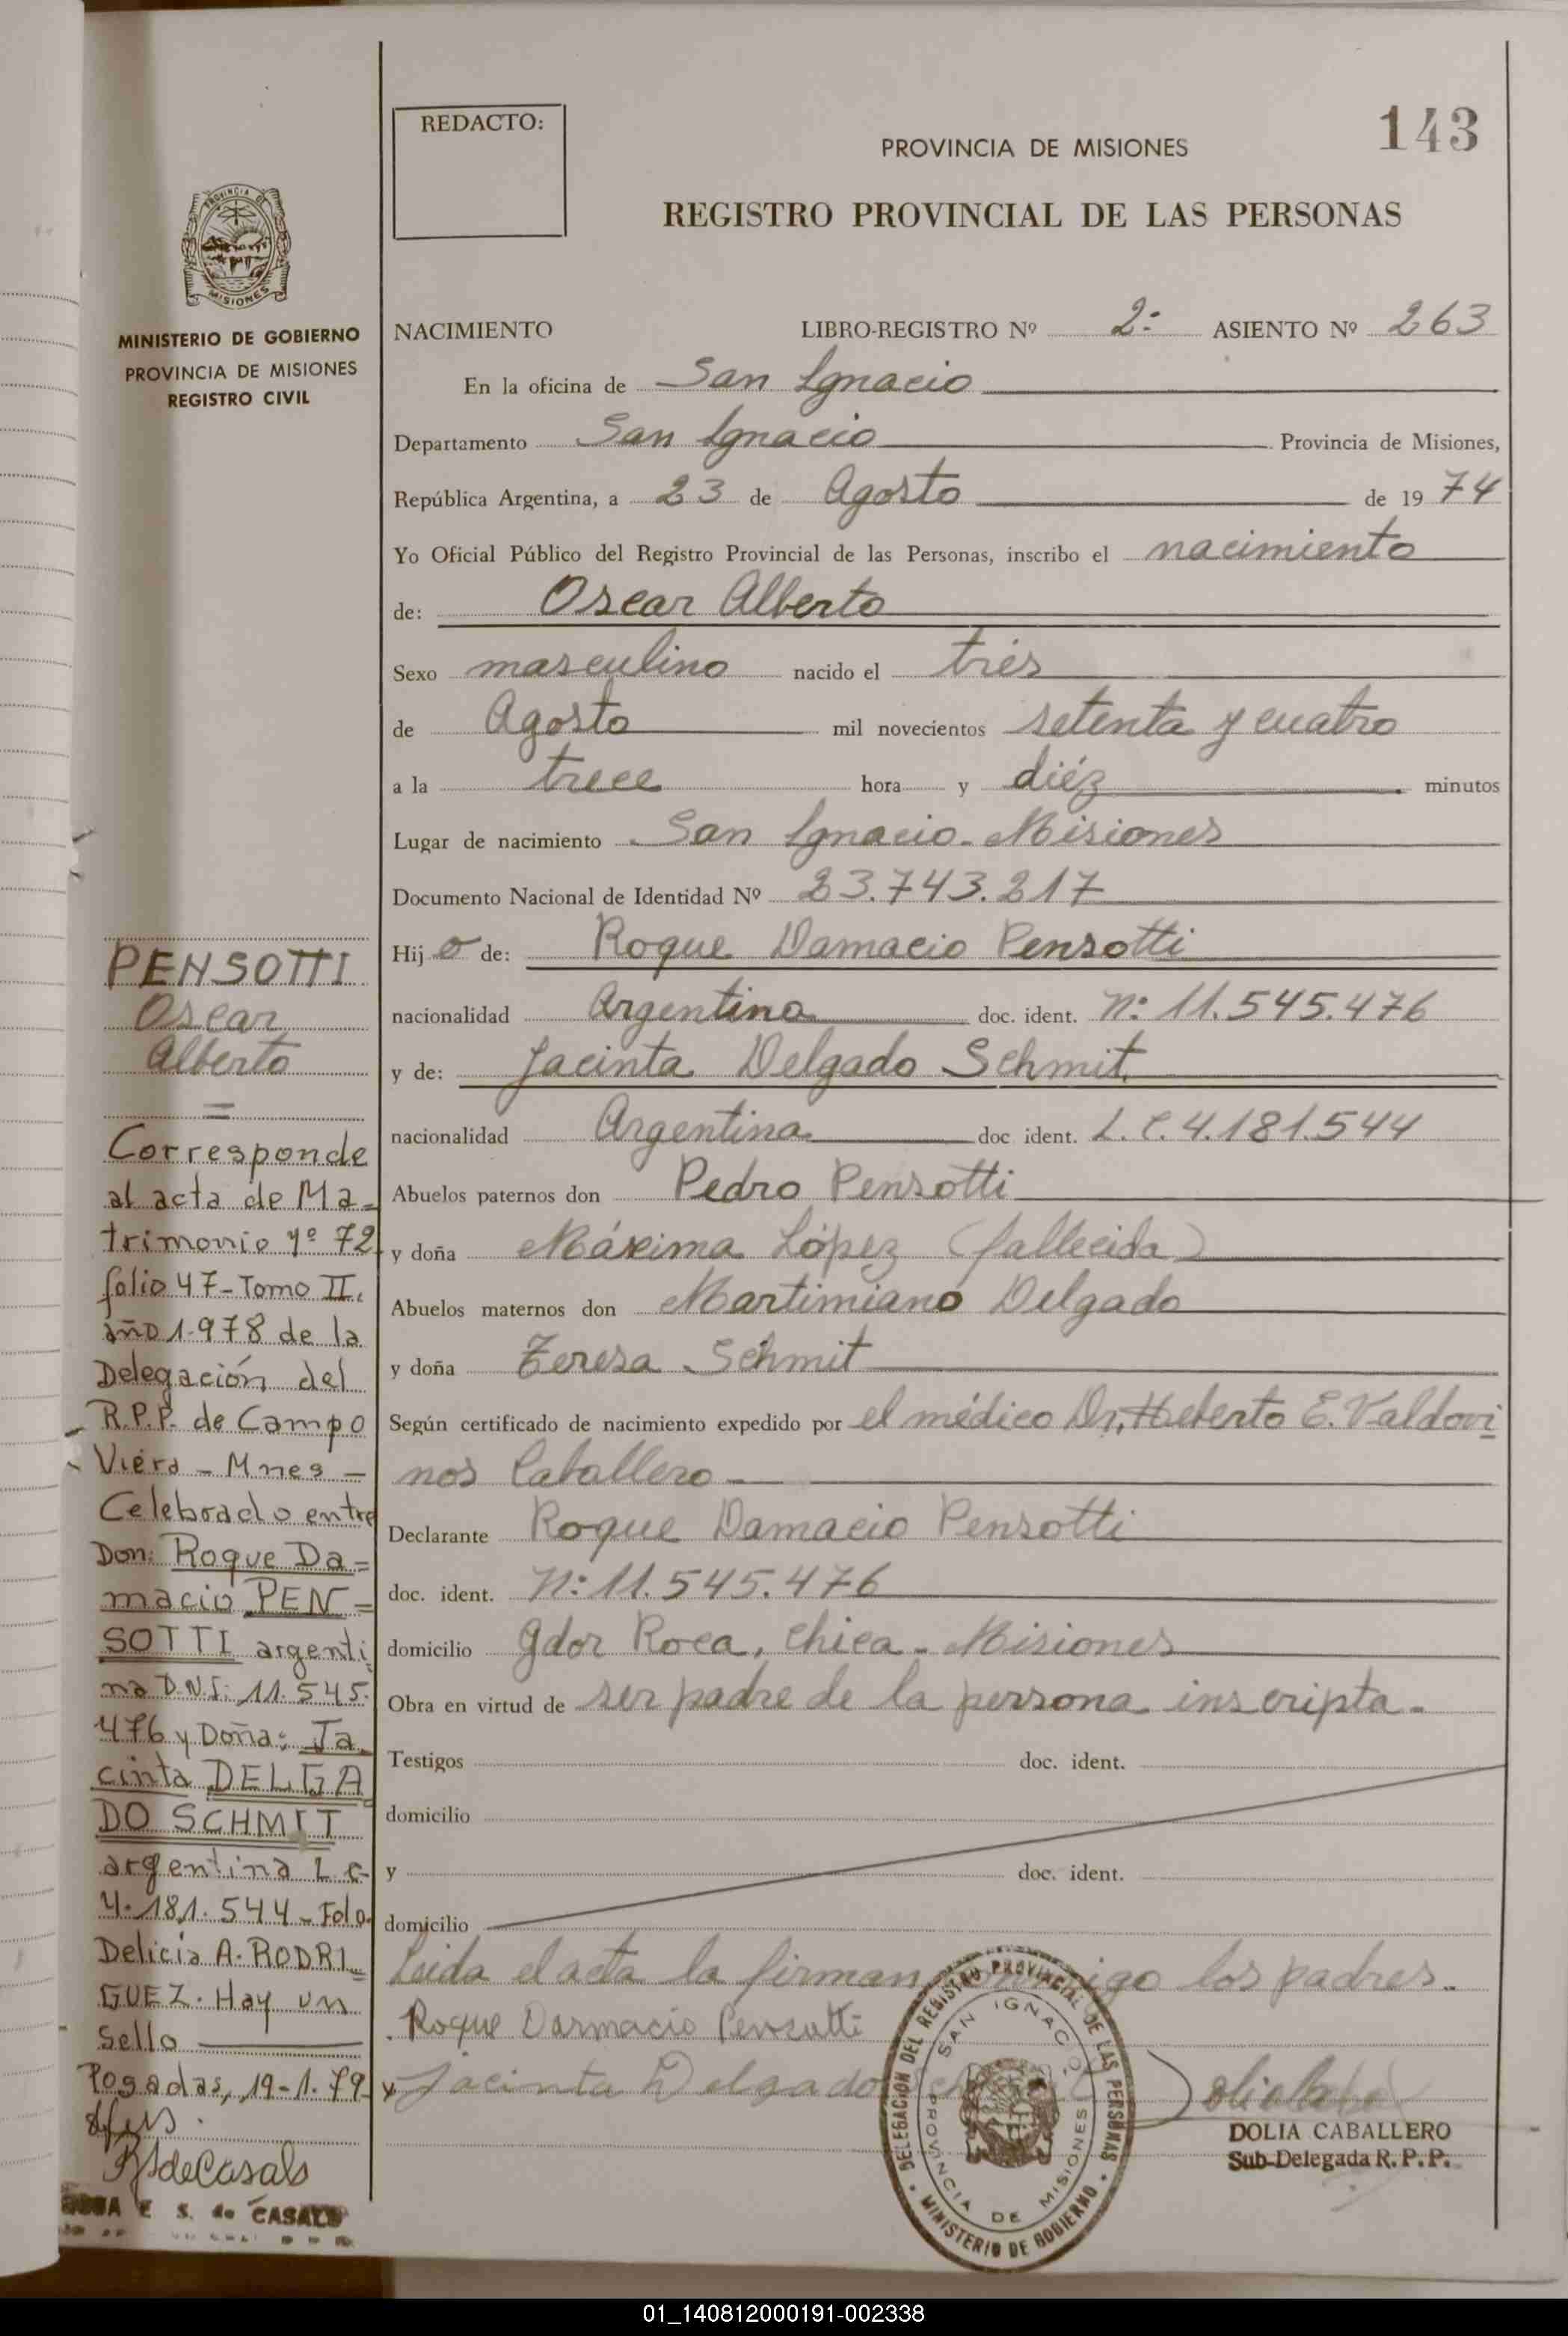 REDACTO:
143
PROVINCIA DE MISIONES
REGISTRO PROVINCIAL DE LAS PERSONAS
PROVINCIA DE
MISIONES
MINISTERIO DE GOBIERNO
PROVINCIA DE MISIONES
REGISTRO CIVIL
NACIMIENTO LIBRO-REGISTRO Nº 2º ASIENTO Nº 263
En la oficina de San Ignacio
Departamento San Ignacio Provincia de Misiones,
República Argentina, a 23 de Agosto de 1974
Yo Oficial Público del Registro Provincial de las Personas, inscribo el nacimiento
de: Oscar Alberto
Sexo masculino nacido el trés
de Agosto mil novecientos setenta y cuatro
a la trece hora y diéz minutos
Lugar de nacimiento San Ignacio - Misiones
Documento Nacional de Identidad Nº 23.743.217
Hijo de: Roque Damacio Pensotti
nacionalidad Argentina doc. ident. Nº 11.545.476
y de: Jacinta Delgado Schmit
nacionalidad Argentina doc ident. L.C. 4.181.544
Abuelos paternos don Pedro Pensotti
y doña Máxima López (fallecida)
Abuelos maternos don Martimiano Delgado
y doña Teresa Schmit
Según certificado de nacimiento expedido por el médico Dr. Heberto E. Valdovi
nos Caballero -
Declarante Roque Damacio Pensotti
doc. ident. Nº 11.545.476
domicilio Gdor Roca, Chica - Misiones
Obra en virtud de ser padre de la persona inscripta -
Testigos doc. ident.
domicilio
y doc. ident.
domicilio
Leida el acta la firman conmigo los padres -
Roque Darmacio Pensotti
Jacinta Delgado
DELEGACION DEL REGISTRO PROVINCIAL DE LAS PERSONAS
MINISTERIO DE GOBIERNO
SAN IGNACIO
PROVINCIA DE MISIONES
DOLIA CABALLERO
Sub-Delegada R. P. P.
PENSOTTI
Oscar
Alberto
=
Corresponde
al acta de Ma-
trimonio Nº 72
folio 47 - Tomo II,
año 1.978 de la
Delegación del
R.P.P. de Campo
Viera - Mnes -
Celebrado entre
Don: Roque Da=
macio PEN=
SOTTI argenti
no D.N.I: 11.545.
476 y Doña: Ja
cinta DELGA
DO SCHMIT
argentina L.C
4.181.544 - Fdo.
Delicia A. RODRI
GUEZ. Hay un
Sello
Posadas, 19-1-79
de Casals
E S. de CASALS
01_140812000191-002338